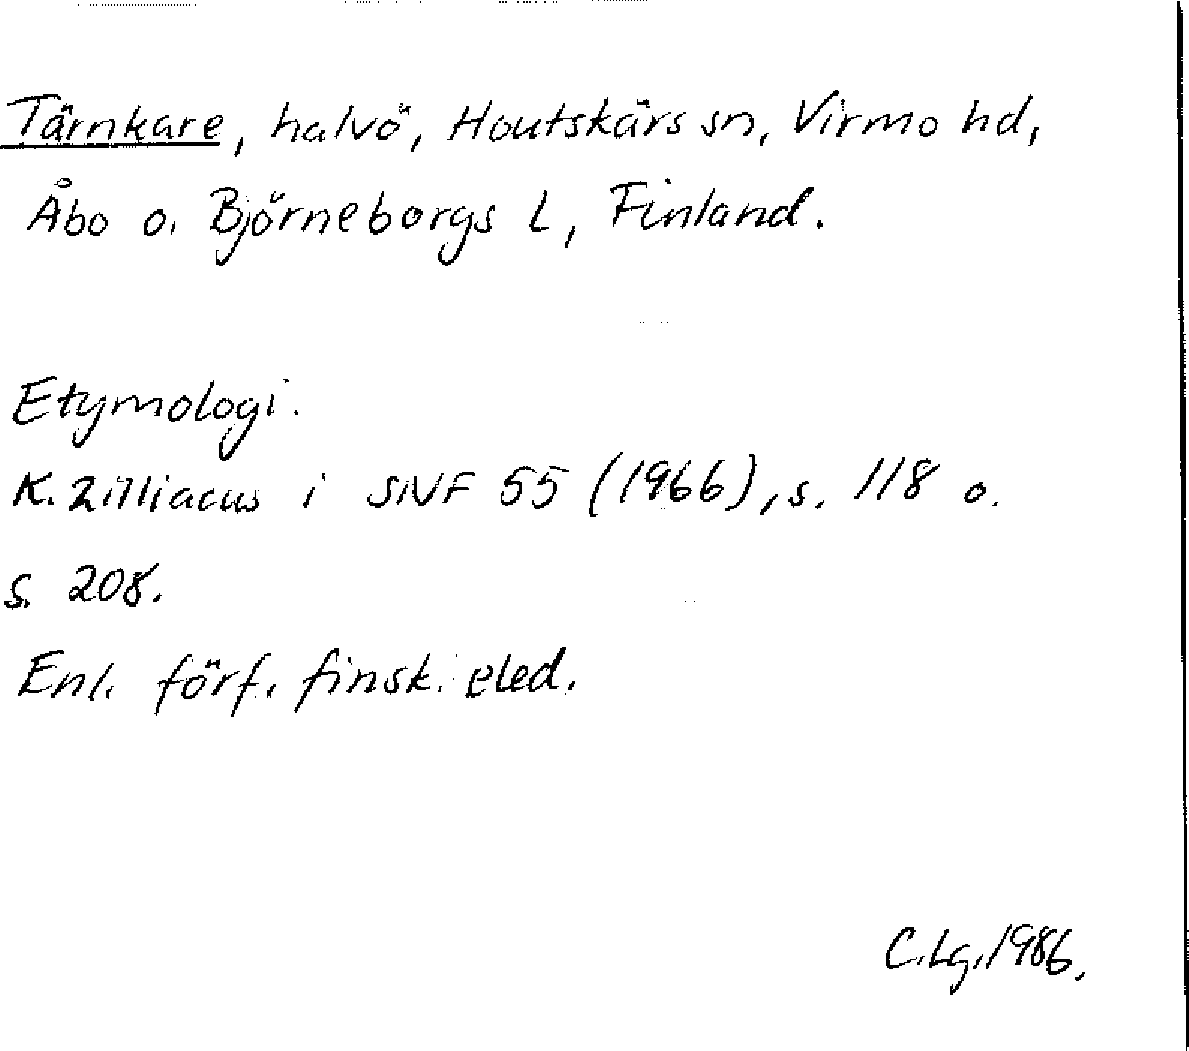 Tärnkare, halvö, Houtskärs sn, Virmo hd,
Åbo o. Björneborgs L, Finland.
Etymologi.
K. Zilliacus i SNF 55 (1966), s. 118 o.
s. 208.
Enl. förf. finsk. eled.
C.Lg.1986.